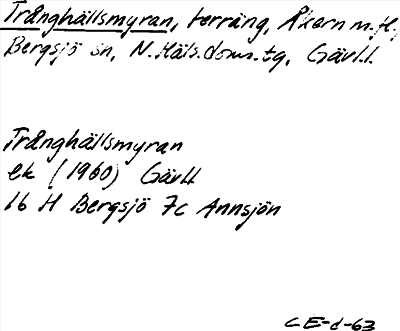 Trånghällsmyran, terräng, Åkern m.fl.,
Bergsjö sn, N. Häls. doms.tg, Gävl.l.
Trånghällsmyran
ek (1960) Gävll
16 H Bergsjö 7c Annsjön
CE-d-63